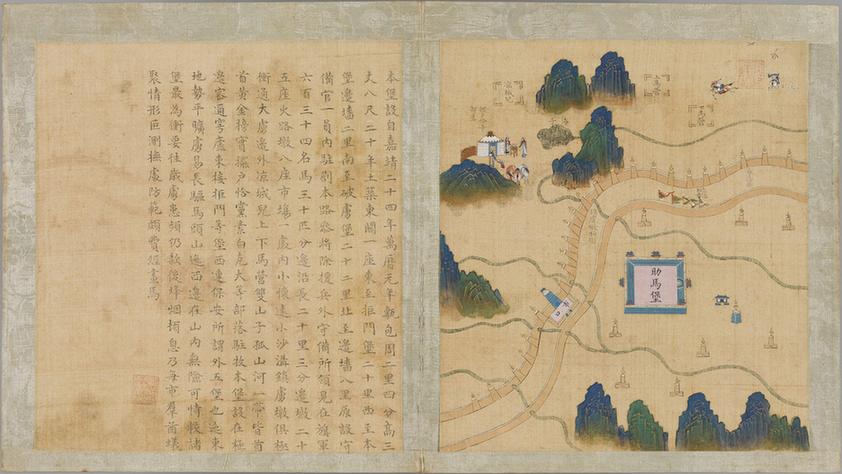 本堡設自嘉靖二十四年萬曆元年甎包周二里四分高三
丈八尺二十年土築東關一座東至拒門堡二十里西至本
堡邊墻二里南至破虜堡二十二里北至邊墻八里原設守
備官一員內駐劄本路叅將除援兵外守備所領見在旗軍
六百三十四名馬三十匹分邊沿長二十里三分邊墩二十
五座火路墩八座市場一處內小懷遠小沙溝鎮虜墩俱極
衝通大虜邊外涼城兒上下馬營雙山子孤山河一帶皆酋
首黃金榜實擺戶恰黨素白克大等部落駐牧本堡設在極
邊通穹廬東接拒門等堡西連保安所謂外五堡也迤東
地勢平曠虜易長驅馬頭山迤西邊在山內無險可恃較諸
堡最為衝要往歲虜患頻仍款後烽烟頓息乃每市羣酋蟻
聚情形叵測撫處防範頗費經畫焉
上馬營
下馬營
涼城兒
助馬堡
市口